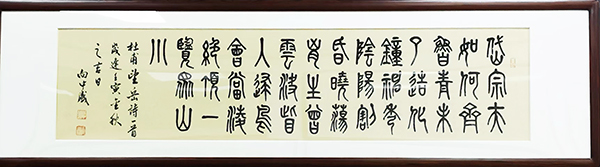 岱宗夫
如何齊
魯青未
了造化
鐘神秀
陰陽割
昏曉蕩
胸生曾
雲決眥
入歸鳥
會當凌
絕頂一
覽眾山
小
杜甫望岳詩一首
歲逢壬寅金秋
之吉日
向中